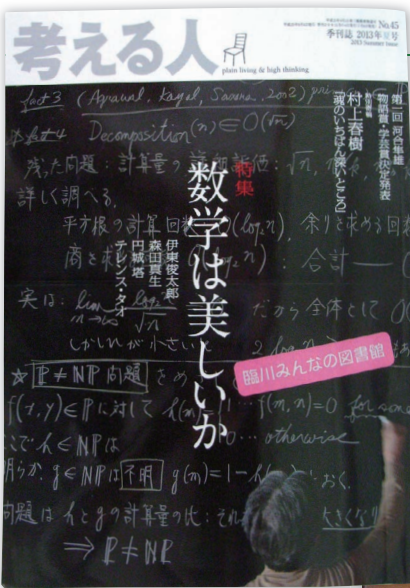 考える人
plain living & high thinking
No.45
季刊誌 2013年夏号
2013 Summer issue
第一回 河合隼雄
物語賞・学芸賞決定発表
村上春樹
「魂のいちばん深いところ」
特集
数学は美しいか
伊東俊太郎
森田真生
円城塔
テレンス・タオ
臨川みんなの図書館
fact 3 (Agrawal, Kayal, Saxena, 2002)
fact 4 Decomposition(n) ∈ O(√n)
残った問題：計算量の
詳しく調べる.
平方根の計算回
(log₂n), 余りを求める回
商を求
₂n)：合計 —
実は： lim log₂ √n
だから全体として O(
しかし n が小さいと
2 log
☆ P ≠ NP 問題 をめ
f(x,y) ∈ P に対して h(m)
f(m,n)=0 for som
ここで h ∈ NP は
0 … otherwise
明らか, g ∈ NP は 不明 g(m)=1-h(
おく.
問題は h と g の計算量の比：それ
大きくなり
⇒ P ≠ NP